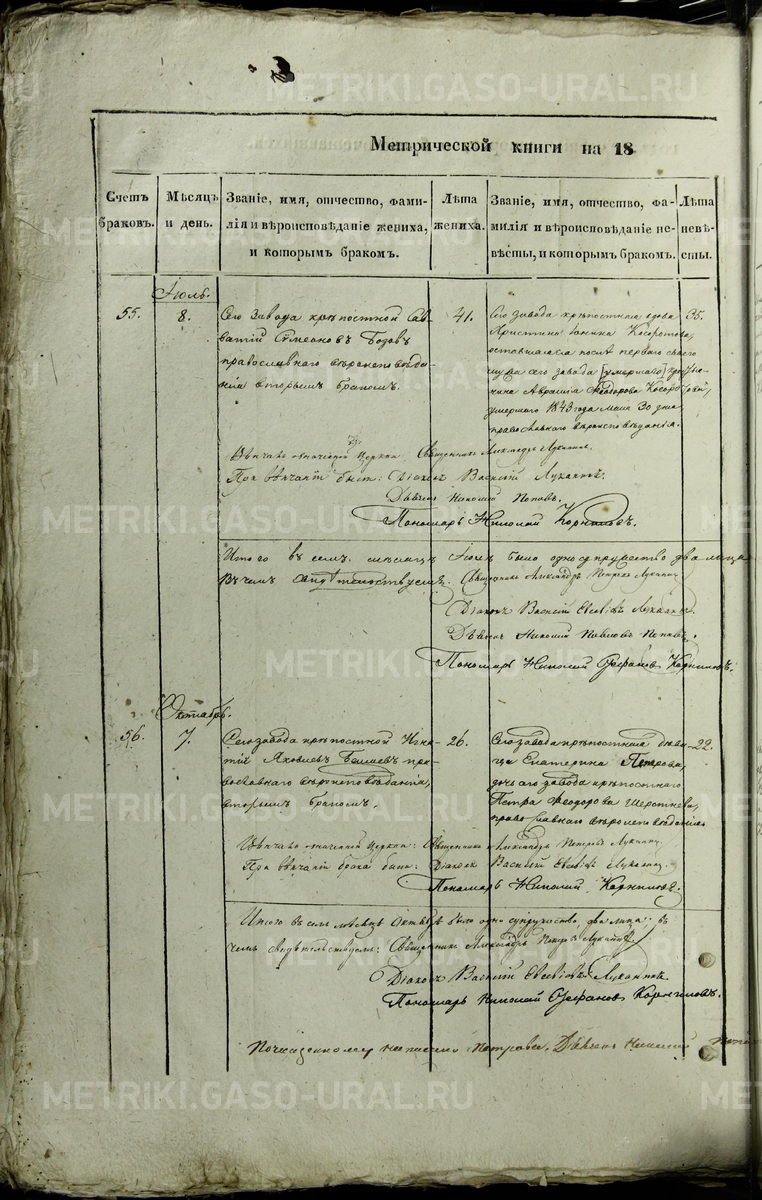 Метрической книги на 18
Счетъ браковъ.
Мѣсяцъ и день.
Званіе, имя, отчество, фами-
лія и вѣроисповѣданіе жениха,
и которымъ бракомъ.
Лѣта жениха.
Званіе, имя, отчество, фа-
милія и вѣроисповѣданіе не-
вѣсты, и которымъ бракомъ.
Лѣта невѣ-
сты.
Іюль.
55.
8.
Сего завода крѣпостной Сав-
ватій Симеоновъ
православнаго вѣроисповѣда-
нія вторымъ бракомъ.
41.
Сего завода крѣпостная вдова
Христина
оставшаяся послѣ перваго своего
мужа сего завода [умершаго]
Ѳеодорова
умершаго 1843 года маія 30 дня
православнаго вѣроисповѣданія.
35.
Вѣнчалъ означенной Церкви Священникъ Александръ Луканинъ.
При вѣнчаніи былъ: Діаконъ Василій Луканинъ.
Дьячекъ Николай Поповъ.
Пономарь Николай Корниловъ.
Итого въ семъ мѣсяцѣ Іюлѣ было одно супружество два лица
въ чемъ свидѣтельствуемъ: Священникъ Александръ Петровъ Луканинъ
Діаконъ Василій Евсевіевъ Луканинъ.
Дьячекъ Николай Павловъ Поповъ.
Пономарь Николай Стефановъ Корниловъ.
Октябрь.
56.
7.
Сего завода крѣпостной Игна-
тій Яковлевъ пра-
вославнаго вѣроисповѣданія,
вторымъ бракомъ.
26.
Сего завода крѣпостная дѣви-
ца Екатерина Петрова,
дочь сего завода крѣпостнаго
Петра Ѳеодорова
православнаго вѣроисповѣданія.
22.
Вѣнчалъ означенной Церкви: Священникъ Александръ Петровъ Луканинъ.
При вѣнчаніи брака были: Діаконъ Василій Евсевіевъ Луканинъ.
Пономарь Николай Корниловъ.
Итого въ семъ мѣсяцѣ Октябрѣ было одно супружество, два лица: въ
чемъ свидѣтельствуемъ: Священникъ Александръ Петровъ Луканинъ.
Діаконъ Василій Евсевіевъ Луканинъ.
Пономарь Николай Стефановъ Корниловъ.
По чищенному написано Петрова. Дьячекъ Николай
METRIKI.GASO-URAL.RU